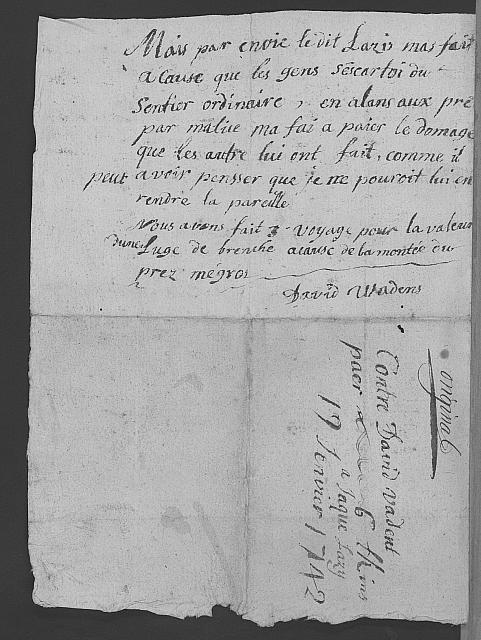 Mais par envie le dit Lazis mas fait
a Cause que les gens s'escartoi du
Sentier ordinaire, en alans aux pré
par malice ma fai a paier le domage
que les autre lui ont fait, comme il
peut avoir pensser que je ne pouroit lui en
rendre la pareille
nous avons fait 3 voyage pour la valeur
dune Luge de brenche a cause de la montée du
prez mégros
David Wadens
original
Contre David Vadent
paer 6
a Jaque Lazy
19 Jenvier 1742